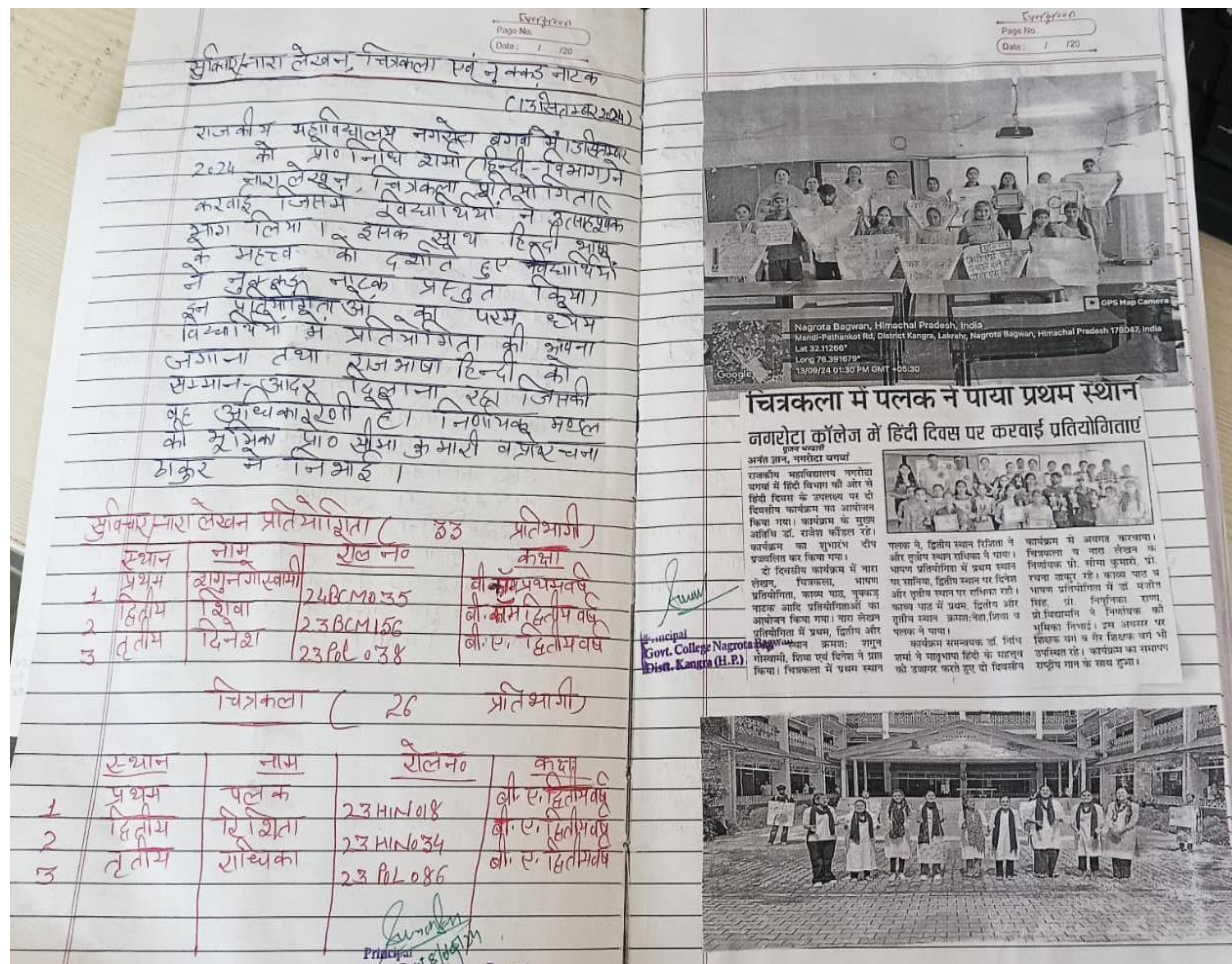 Evergreen
Page No.
Date : / /20
सुविचार/नारा लेखन, चित्रकला एवं नुक्कड़ नाटक
(13 सितम्बर 2024)
राजकीय महाविद्यालय नगरोटा बगवां में 13 सितम्बर
2024 को प्रो० निधि शर्मा (हिन्दी-विभाग) ने
नारा लेखन, चित्रकला प्रतियोगिताएं
करवाई जिसमें विद्यार्थियों ने उत्साहपूर्वक
भाग लिया। इसके साथ हिन्दी भाषा
के महत्त्व को दर्शाते हुए विद्यार्थियों
ने नुक्कड़ नाटक प्रस्तुत किया।
इन प्रतियोगिताओं का परम ध्येय
विद्यार्थियों में प्रतियोगिता की भावना
जगाना तथा राजभाषा हिन्दी को
सम्मान-आदर दिलाना रहा जिसकी
वह अधिकारिणी है। निर्णायक मण्डल
की भूमिका प्रो० सीमा कुमारी व प्रो० रचना
ठाकुर ने निभाई।
सुविचार/नारा लेखन प्रतियोगिता ( 33 प्रतिभागी)
स्थान नाम रोल न० कक्षा
1 प्रथम शगुन गोस्वामी 24BCM035 बी.कॉम प्रथम वर्ष
2 द्वितीय शिवा 23BCM156 बी.कॉम द्वितीय वर्ष
3 तृतीय दिनेश 23POL038 बी.ए. द्वितीय वर्ष
चित्रकला ( 26 प्रतिभागी)
स्थान नाम रोल न० कक्षा
1 प्रथम पलक 23HIN018 बी.ए. द्वितीय वर्ष
2 द्वितीय रिशिता 23HIN034 बी.ए. द्वितीय वर्ष
3 तृतीय राधिका 23POL086 बी.ए. द्वितीय वर्ष
Principal
Evergreen
Page No.
Date : / /20
GPS Map Camera
Nagrota Bagwan, Himachal Pradesh, India
Mandi-Pathankot Rd, District Kangra, Lakrehr, Nagrota Bagwan, Himachal Pradesh 176047, India
Lat 32.11266°
Long 76.391679°
13/09/24 01:30 PM GMT +05:30
Google
चित्रकला में पलक ने पाया प्रथम स्थान
नगरोटा कॉलेज में हिंदी दिवस पर करवाई प्रतियोगिताएं
अनंत ज्ञान, नगरोटा बगवां
राजकीय महाविद्यालय नगरोटा
बगवां में हिंदी विभाग की ओर से
हिंदी दिवस के उपलक्ष्य पर दो
दिवसीय कार्यक्रम का आयोजन
किया गया। कार्यक्रम के मुख्य
अतिथि डॉ. राजेश कौंडल रहे।
कार्यक्रम का शुभारंभ दीप
प्रज्वलित कर किया गया।
दो दिवसीय कार्यक्रम में नारा
लेखन, चित्रकला, भाषण
प्रतियोगिता, काव्य पाठ, नुक्कड़
नाटक आदि प्रतियोगिताओं का
आयोजन किया गया। नारा लेखन
प्रतियोगिता में प्रथम, द्वितीय और
स्थान क्रमश: शगुन
गोस्वामी, शिवा एवं दिनेश ने प्राप्त
किया। चित्रकला में प्रथम स्थान
पलक ने, द्वितीय स्थान रिशिता ने
और तृतीय स्थान राधिका ने पाया।
भाषण प्रतियोगिता में प्रथम स्थान
पर सानिया, द्वितीय स्थान पर दिनेश
और तृतीय स्थान पर राधिका रही।
काव्य पाठ में प्रथम, द्वितीय और
तृतीय स्थान क्रमश:नेहा,शिवा व
पलक ने पाया।
कार्यक्रम समन्वयक डॉ. निधि
शर्मा ने मातृभाषा हिंदी के महत्व
को उजागर करते हुए दो दिवसीय
कार्यक्रम से अवगत करवाया।
चित्रकला व नारा लेखन के
निर्णायक प्रो. सीमा कुमारी, प्रो.
रचना ठाकुर रहे। काव्य पाठ व
भाषण प्रतियोगिता में डॉ मंजीत
सिंह, प्रो. निपुनिका राणा,
प्रो.विद्यामनि ने निर्णायक की
भूमिका निभाई। इस अवसर पर
शिक्षक वर्ग व गैर शिक्षक वर्ग भी
उपस्थित रहे। कार्यक्रम का समापन
राष्ट्रीय गान के साथ हुआ।
Govt. College Nagrota Bagwan
Distt. Kangra (H.P.)